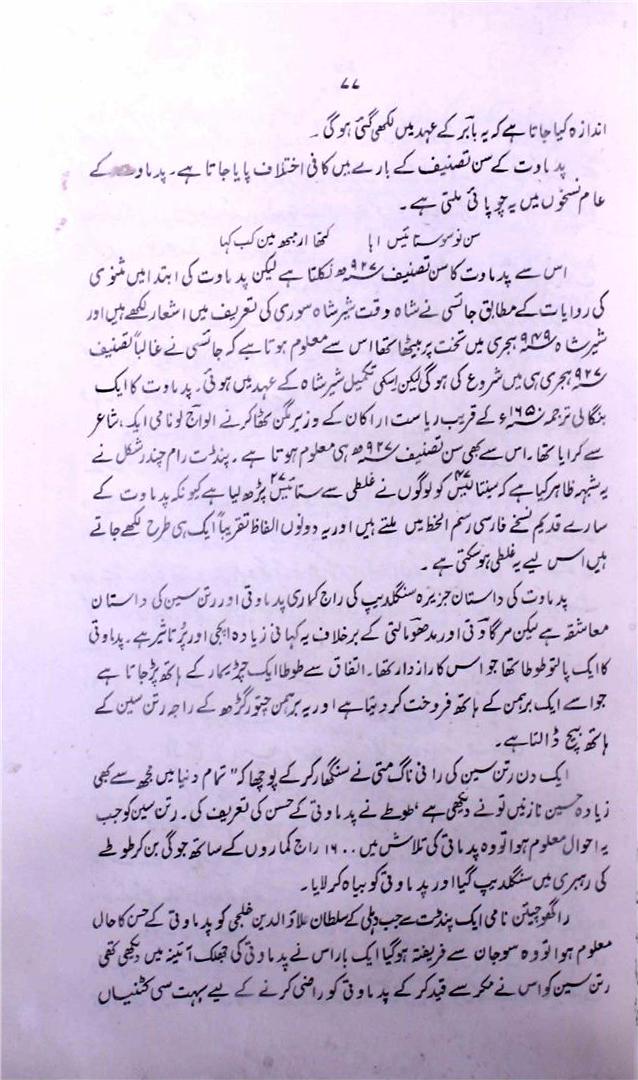 ۷۷
اندازہ کیا جاتا ہے کہ یہ بابر کے عہد میں لکھی گئی ہو گی ۔
پدماوت کے سن تصنیف کے بارے میں کافی اختلاف پایا جاتا ہے۔ پدماوت کے
عام نسخوں میں یہ چوپائی ملتی ہے ۔
سن نو سو ستائیس اہا کتھا ارمبھ بین کب کہا
اس سے پدماوت کا سن تصنیف ۹۲۷ھ نکلتا ہے لیکن پدماوت کی ابتدا میں مثنوی
کی روایات کے مطابق جائسی نے شاہ وقت شیر شاہ سوری کی تعریف میں اشعار لکھے ہیں اور
شیر شاہ ۹۴۹ ہجری میں تخت پر بیٹھا تھا اس سے معلوم ہوتا ہے کہ جائسی نے غالباً تصنیف
۹۲۷ ہجری ہی میں شروع کی ہو گی لیکن اسکی تکمیل شیر شاہ کے عہد میں ہوئی۔ پدماوت کا ایک
بنگالی ترجمہ ۱۶۵۰ء کے قریب ریاست اراکان کے وزیر مگن ٹھاکر نے الوآج لو نامی ایک شاعر
سے کرایا تھا۔ اس سے بھی سن تصنیف ۹۲۷ھ ہی معلوم ہوتا ہے ۔ پنڈت رام چندر شکل نے
یہ شبہ ظاہر کیا ہے کہ سینتالیس ۴۷ کو لوگوں نے غلطی سے ستائیس ۲۷ پڑھ لیا ہے کیونکہ پدماوت کے
سارے قدیم نسخے فارسی رسم الخط میں ملتے ہیں اور یہ دونوں الفاظ تقریباً ایک ہی طرح لکھے جاتے
ہیں اس لیے یہ غلطی ہو سکتی ہے ۔
پدماوت کی داستان جزیرہ سنگلدیپ کی راج کماری پدماوتی اور رتن سین کی داستان
معاشقہ ہے لیکن مرگاوتی اور مدھومالتی کے برخلاف یہ کہانی زیادہ اچھی اور پرتاثیر ہے۔ پدماوتی
کا ایک پالتو طوطا تھا جو اس کا رازدار تھا۔ اتفاق سے طوطا ایک چڑیمار کے ہاتھ پڑ جاتا ہے
جو اسے ایک برہمن کے ہاتھ فروخت کر دیتا ہے اور یہ برہمن چتورگڑھ کے راجہ رتن سین کے
ہاتھ بیچ ڈالتا ہے۔
ایک دن رتن سین کی رانی ناگ متی نے سنگھار کر کے پوچھا کہ "تمام دنیا میں مجھ سے بھی
زیادہ حسین نازنیں تو نے دیکھی ہے‘ طوطے نے پدماوتی کے حسن کی تعریف کی۔ رتن سین کو جب
یہ احوال معلوم ہوا تو وہ پدماتی کی تلاش میں ۱۶۰۰ راج کماروں کے ساتھ جوگی بن کر طوطے
کی رہبری میں سنگلدیپ گیا اور پدماوتی کو بیاہ کر لایا۔
راگھو چیتن نامی ایک پنڈت سے جب دہلی کے سلطان علاؤالدین خلجی کو پدماوتی کے حسن کا حال
معلوم ہوا تو وہ سو جان سے فریفتہ ہو گیا ایک بار اس نے پدماوتی کی جھلک آئینہ میں دیکھی تھی
رتن سین کو اس نے مکر سے قید کر کے پدماوتی کو راضی کرنے کے لیے بہت سی کٹنیاں